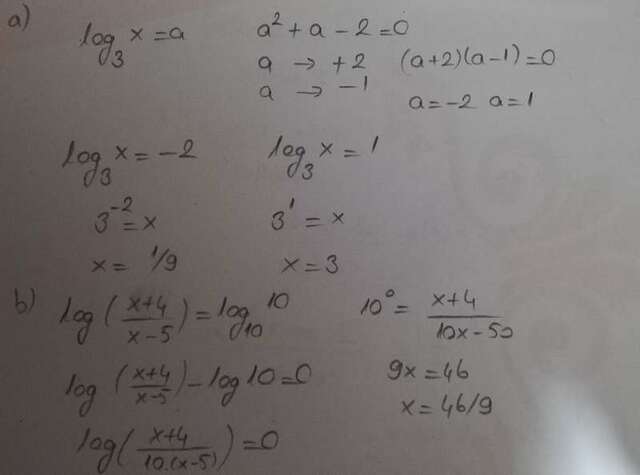 a) log₃ x = a    a² + a - 2 = 0
a → +2    (a+2)(a-1) = 0
a → -1    a = -2  a = 1
log₃ x = -2    log₃ x = 1
3⁻² = x    3¹ = x
x = 1/9    x = 3
b) log((x+4)/(x-5)) = log₁₀ 10    10⁰ = (x+4)/(10x-50)
log((x+4)/(x-5)) - log 10 = 0    9x = 46
x = 46/9
log((x+4)/(10.(x-5))) = 0